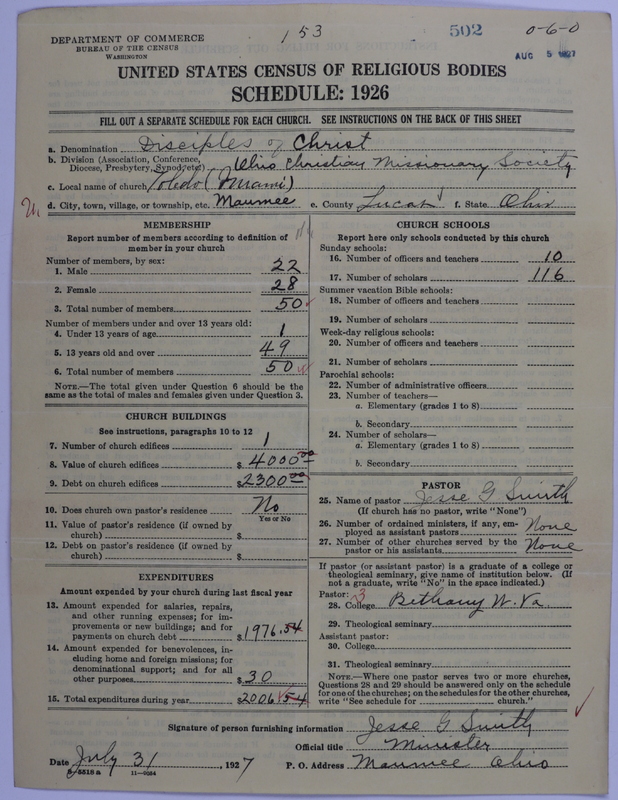 DEPARTMENT OF COMMERCE
BUREAU OF THE CENSUS
WASHINGTON
153
502
0-6-0
AUG 5 1927
UNITED STATES CENSUS OF RELIGIOUS BODIES
SCHEDULE: 1926
FILL OUT A SEPARATE SCHEDULE FOR EACH CHURCH. SEE INSTRUCTIONS ON THE BACK OF THIS SHEET
a. Denomination Disciples of Christ
b. Division (Association, Conference, Diocese, Presbytery, Synod, etc) Ohio Christian Missionary Society
c. Local name of church Toledo (Miami)
d. City, town, village, or township, etc. Maumee e. County Lucas f. State Ohio
MEMBERSHIP
Report number of members according to definition of
member in your church
Number of members, by sex:
1. Male 22
2. Female 28
3. Total number of members 50
Number of members under and over 13 years old:
4. Under 13 years of age 1
5. 13 years old and over 49
6. Total number of members 50
NOTE.—The total given under Question 6 should be the
same as the total of males and females given under Question 3.
CHURCH BUILDINGS
See instructions, paragraphs 10 to 12
7. Number of church edifices 1
8. Value of church edifices $ 4000.00
9. Debt on church edifices $ 2300.00
10. Does church own pastor's residence No
Yes or No
11. Value of pastor's residence (if owned by
church) $
12. Debt on pastor's residence (if owned by
church) $
EXPENDITURES
Amount expended by your church during last fiscal year
13. Amount expended for salaries, repairs,
and other running expenses; for im-
provements or new buildings; and for
payments on church debt $ 1976.54
14. Amount expended for benevolences, in-
cluding home and foreign missions; for
denominational support; and for all
other purposes $ 30
15. Total expenditures during year $ 2006.54
CHURCH SCHOOLS
Report here only schools conducted by this church
Sunday schools:
16. Number of officers and teachers 10
17. Number of scholars 116
Summer vacation Bible schools:
18. Number of officers and teachers
19. Number of scholars
Week-day religious schools:
20. Number of officers and teachers
21. Number of scholars
Parochial schools:
22. Number of administrative officers
23. Number of teachers—
a. Elementary (grades 1 to 8)
b. Secondary
24. Number of scholars—
a. Elementary (grades 1 to 8)
b. Secondary
PASTOR
25. Name of pastor Jesse G Smith
(If church has no pastor, write "None")
26. Number of ordained ministers, if any, em-
ployed as assistant pastors None
27. Number of other churches served by the
pastor or his assistants None
If pastor (or assistant pastor) is a graduate of a college or
theological seminary, give name of institution below. (If
not a graduate, write "No" in the space indicated.)
Pastor: 3
28. College Bethany W. Va.
29. Theological seminary
Assistant pastor:
30. College
31. Theological seminary
NOTE.—Where one pastor serves two or more churches,
Questions 28 and 29 should be answered only on the schedule
for one of the churches; on the schedules for the other churches,
write "See schedule for church."
Signature of person furnishing information Jesse G Smith
Official title Minister
Date July 31, 1927 P. O. Address Maumee Ohio
11—9084